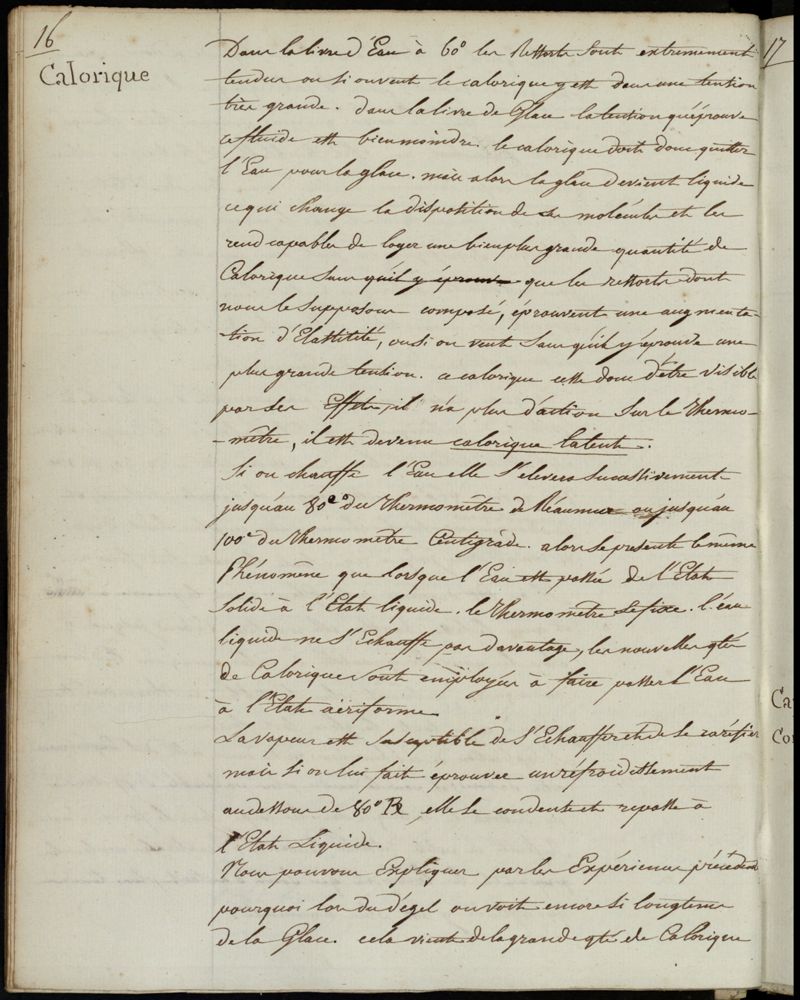 16
Calorique
Dans la livre d'Eau à 60° les Ressorts sont extremement
tendus ou si on veut le calorique y est dans une tention
très grande. dans la livre de Glace la tention qu'éprouve
ce fluide est bien moindre. le calorique doit donc quitter
l'Eau pour la glace. mais alors la glace devient liquide
ce qui change la disposition de ses molécules et les
rend capables de loger une bien plus grande quantité de
Calorique sans qu'il y éprouve que les ressorts dont
nous le supposons composé, éprouvent une augmenta-
tion d'Elastitité, ou si on veut sans qu'il y éprouve une
plus grande tention. ce calorique cesse donc d'être visible
par ses Effets, il n'a plus d'action sur le thermo-
-mètre, il est devenu calorique latent.
Si on chauffe l'Eau elle s'elevera successivement
jusqu'au 80e° du thermomètre de Réaumur ou jusqu'au
100e du thermomètre Centigrade. alors se présente le même
Phénomène que lorsque l'Eau est passée de l'Etat
Solide à l'Etat liquide. le thermomètre se fixe. l'eau
liquide ne s'Echauffe pas davantage, les nouvelles qtés
de Calorique sont employées à faire passer l'Eau
à l'Etat aériforme.
La vapeur est susceptible de s'Echauffer et de se raréfier
mais si on lui fait éprouver un réfroidissement
au dessous de 80° R, elle se condense et repasse à
l'Etat Liquide.
Nous pouvons Expliquer par les Expériences précédentes
pourquoi lors du dégel on voit encore si longtems
de la Glace. cela vient de la grande qté de Calorique
17
Ca
Co